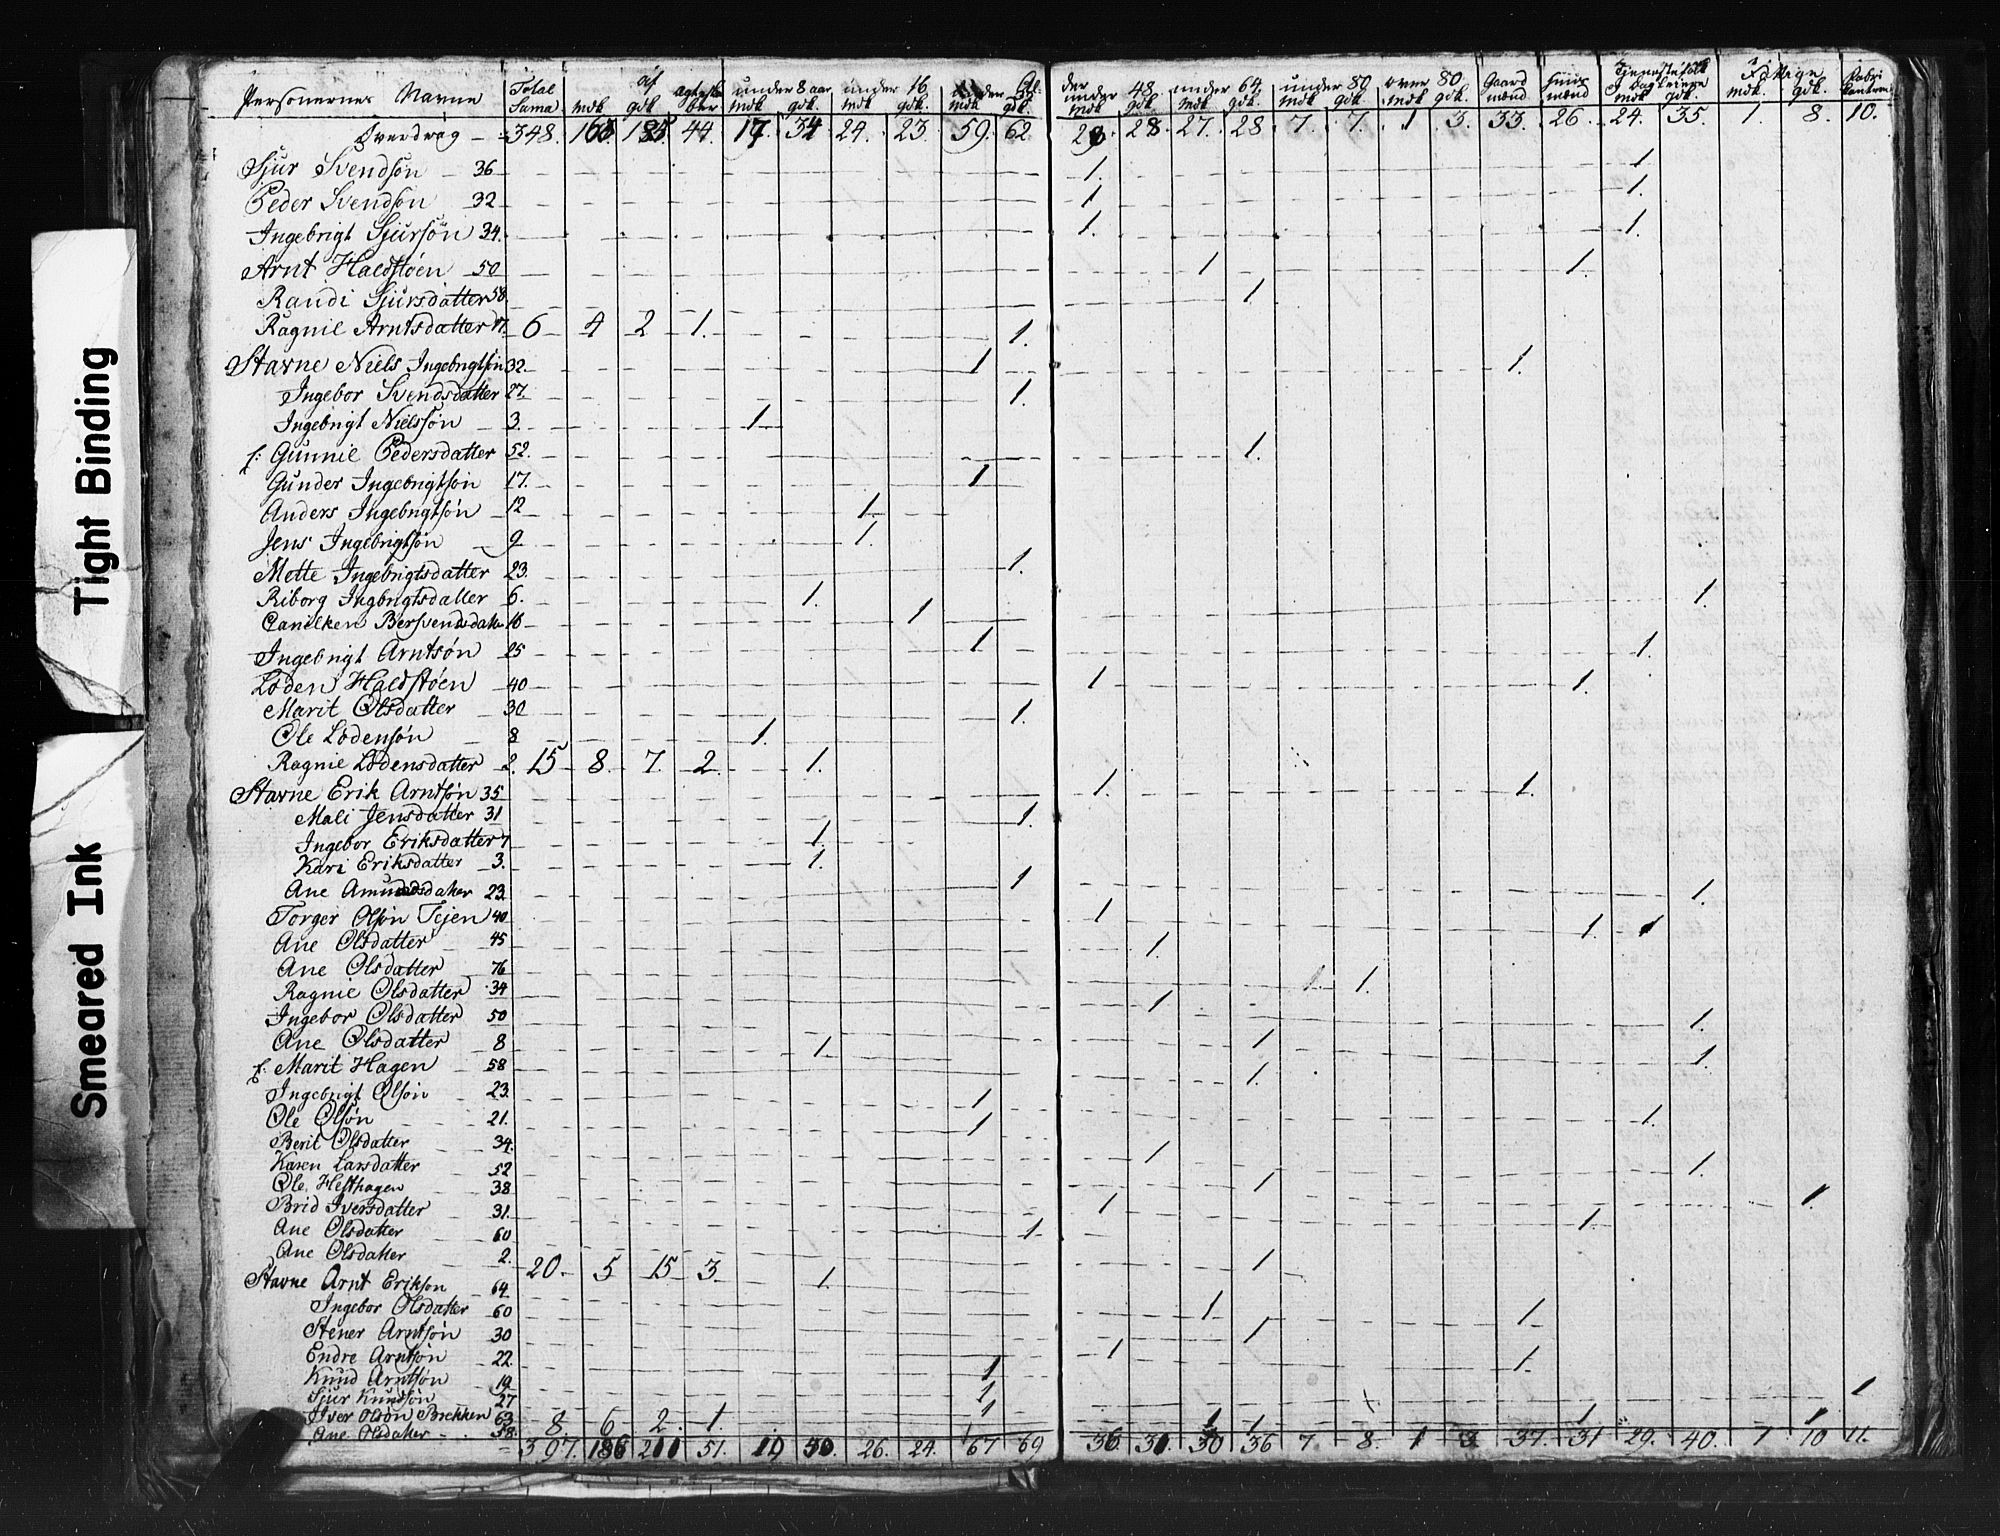 Tight Binding
Smeared Ink
Personernes Navne Total Suma af mdk gdk ægtesk ber under 8 aar mdk gdk under 16 mdk gdk mdk gdk under 48 mdk gdk under 64 mdk gdk under 80 mdk gdk over 80 mdk gdk Gaard mænd Huus mænd Tjenestefolk mdk gdk Fattige mdk gdk
Overdrag 348. 185. 44. 17 34 24. 23. 59. 62. 28. 27. 28 7. 7. 1 3. 33. 26. 24. 35. 1. 8. 10.
Sjur Svendsøn 36 1. 1.
Peder Svendsøn 32 1 1.
Ingebrigt Sjursøn 34. 1. 1.
Arnt Haldstøen 50 1 1.
Randi Sjursdatter 58. 1.
Ragnil Arntsdatter 17. 6 4 2 1. 1.
Stavne Niels Ingebrigtsøn 32 1. 1.
Ingebor Svendsdatter 27. 1.
Ingebrigt Nielssøn 3. 1.
f: Gunnil Pedersdatter 52. 1.
Gunder Ingebrigtsøn 17. 1
Anders Ingebrigtsøn 12 1.
Jens Ingebrigtsøn 9 1.
Mette Ingebrigtsdatter 23. 1.
Riborg Ingbrigtsdatter 6. 1. 1.
Bersvendsdatter 1.
Ingebrigt Arntsøn 25 1 1.
Loden Haldstøen 40 1 1.
Marit Olsdatter 30 1.
Ole Lodensøn 8 1.
Ragnil Lodensdatter 2. 15 8. 7. 2. 1.
Stavne Erik Arntsøn 35 1 1.
Mali Jensdatter 31 1.
Ingebor Eriksdatter 7 1.
Kari Eriksdatter 3. 1.
Ane Amundsdatter 23 1 1.
Torger Olsøn 40 1 1. 1
Ane Olsdatter 45 1.
Ane Olsdatter 76 1 1.
Ragnil Olsdatter 34 1.
Ingebor Olsdatter 50 1.
Ane Olsdatter 8 1. 1.
f: Marit Hagen 58 1. 1.
Ingebrigt Olsøn 23. 1
Ole Olsøn 21. 1 1.
Berit Olsdatter 34. 1
Karen Larsdatter 52 1.
Ole Helthagen 38 1. 1.
Brid Iversdatter 31. 1
Ane Olsdatter 60 1. 1.
Ane Olsdatter 2. 20. 5 15 3. 1. 1.
Stavne Arnt Eriksøn 64
Ingebor Olsdatter 60 1 1.
Stener Arntsøn 30 1.
Endre Arntsøn 22. 1 1.
Knud Arntsøn 19 1
Sjur Knudsøn 27 1 1
Iver Olsøn Brekken 63 1
Ane Olsdatter 58. 8 6 2. 1. 1 1. 1. 1.
397. 186 211 51. 19 50. 26. 24. 67 69 36. 31. 30 36 7 8. 1 3. 37. 31 29. 40. 1 10 11.